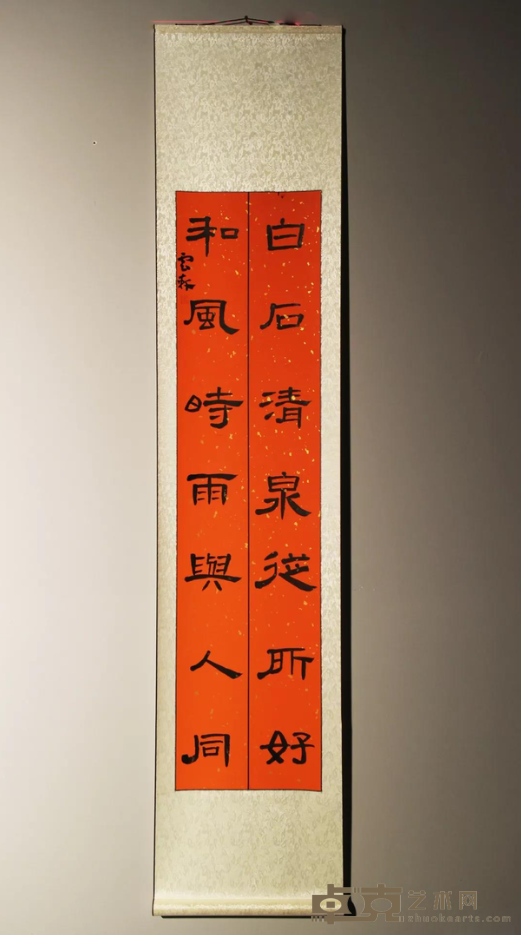 白石清泉從所好
和風時雨與人同
卓克艺术网
zhuokearts.com